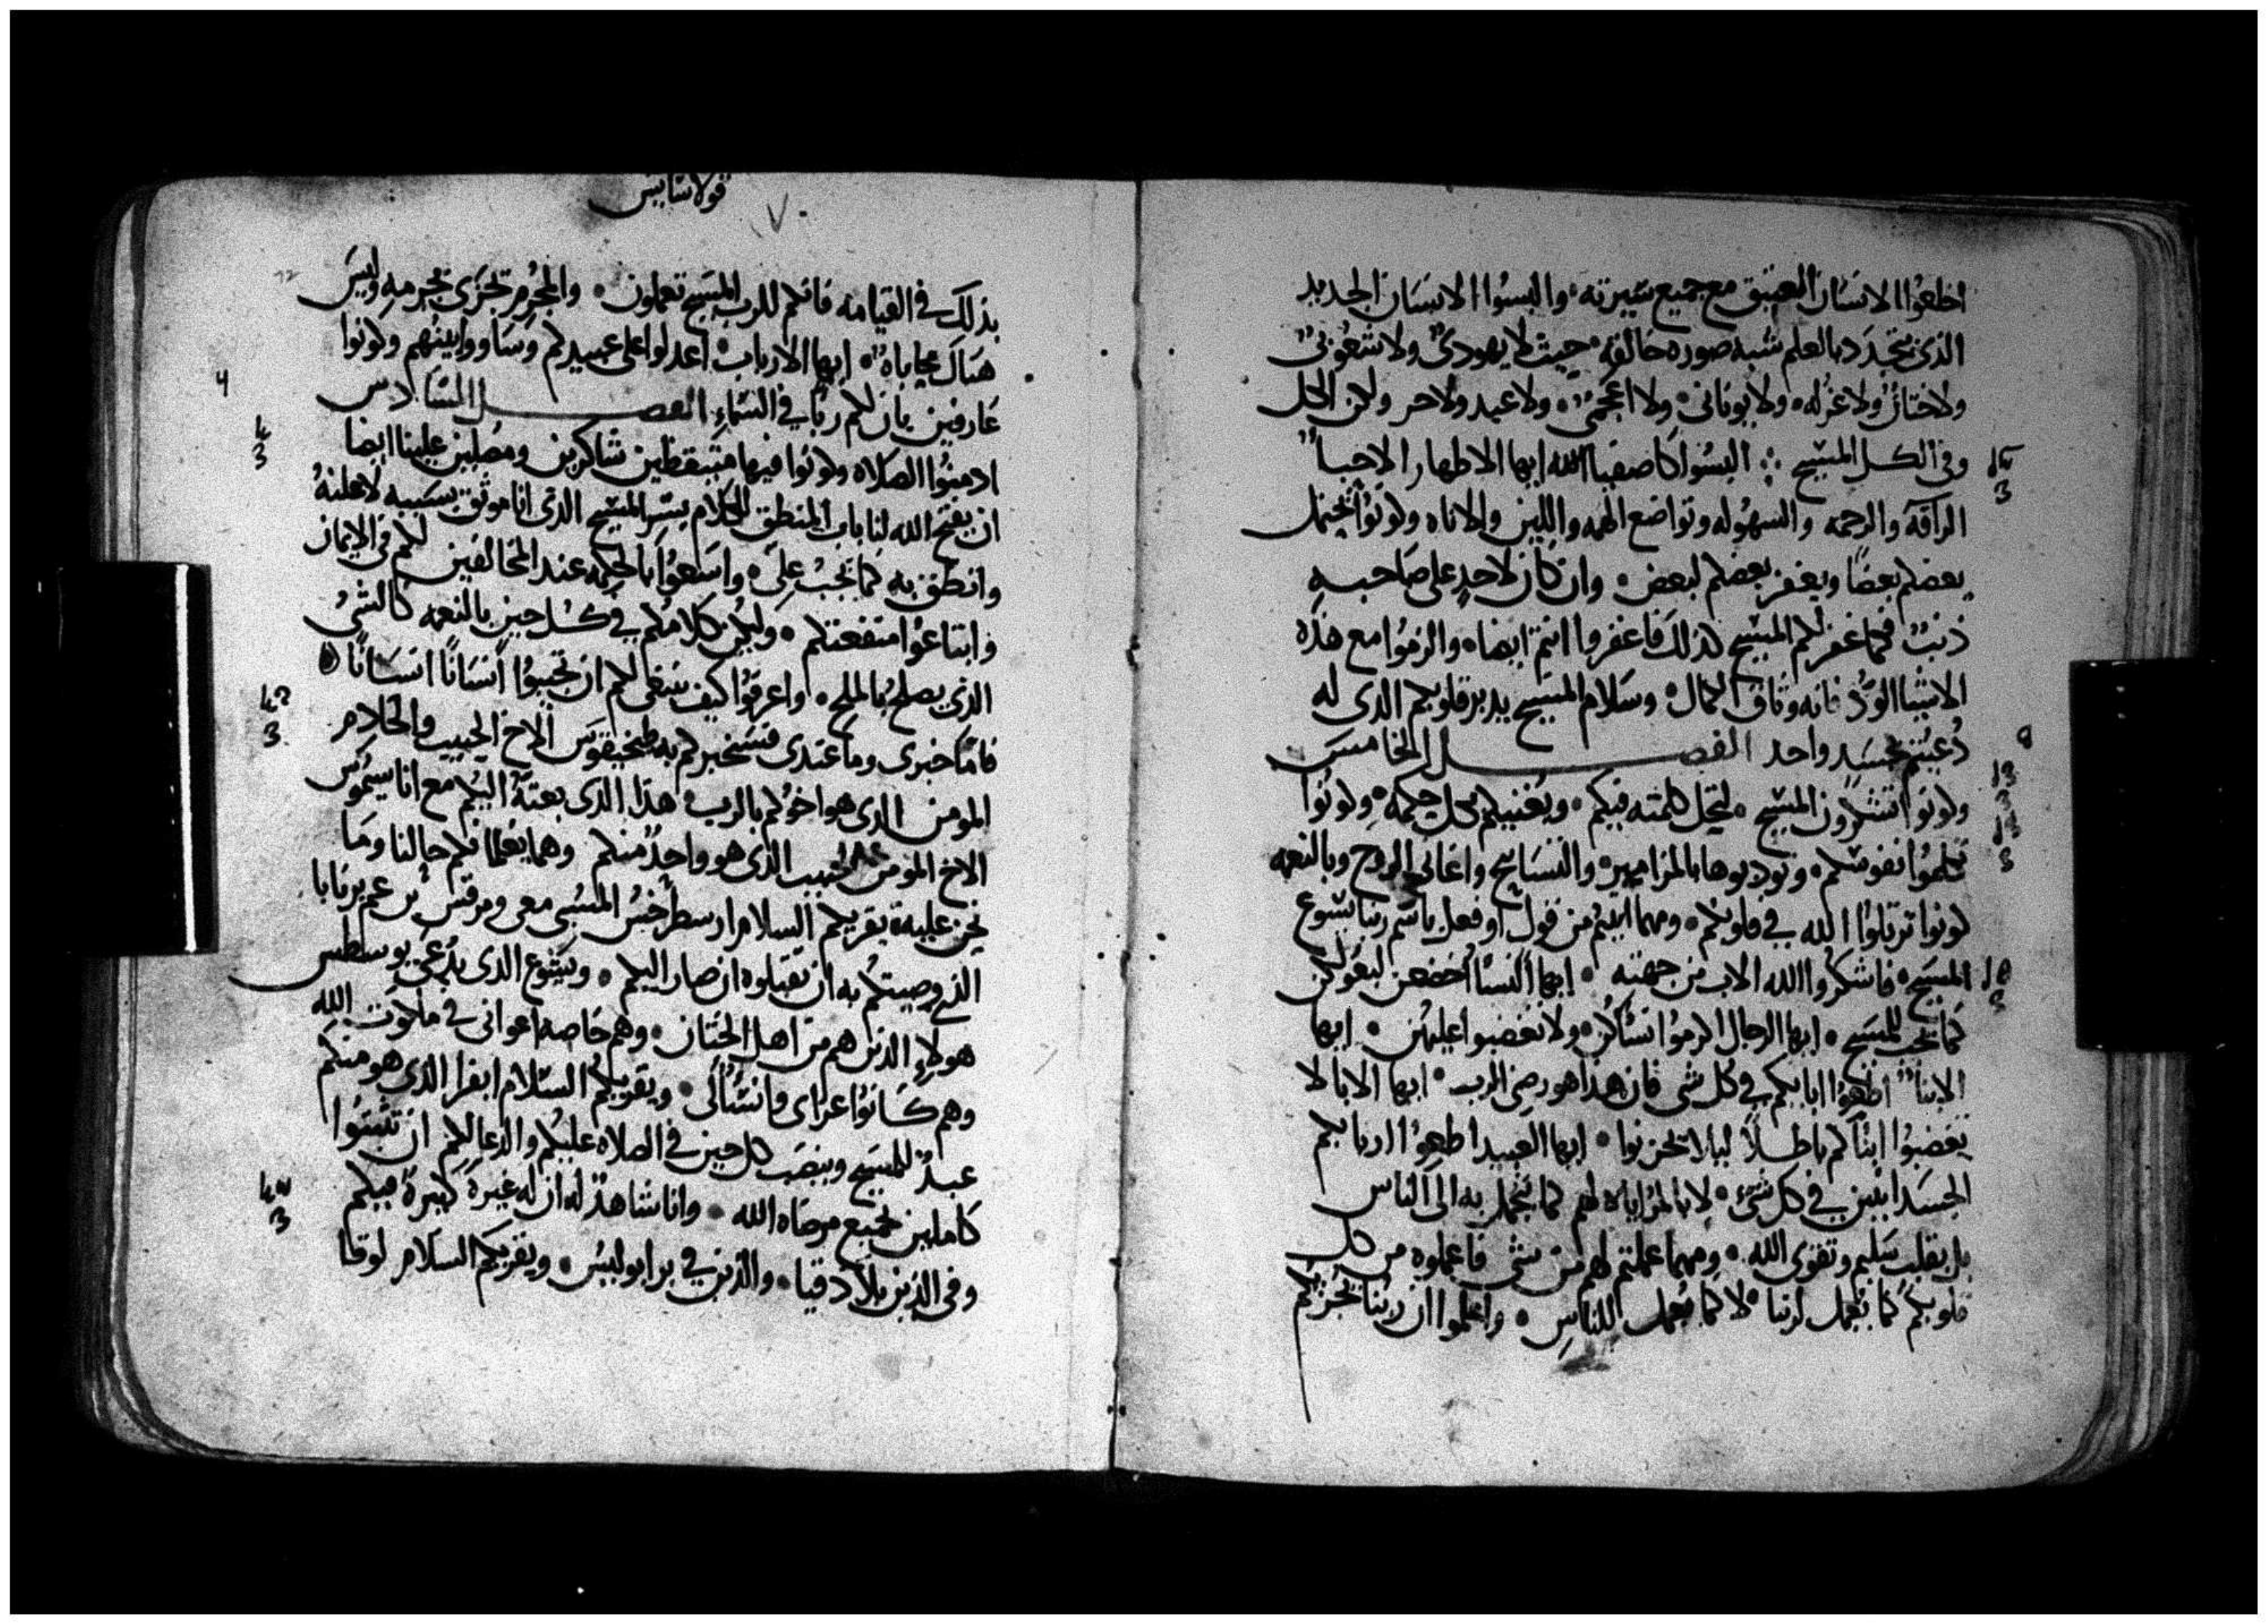 اخلعوا الانسان العتيق مع جميع سيرته والبسوا الانسان الجديد
الذى يتجدد بالعلم شبه صوره خالقه حيث لا يهودى ولا شعوبى
ولا ختان ولا غرله ولا يونانى ولا اعجمى ولا عبد ولا حر ولكن الكل
وفى الكل المسيح البسوا كاصفيا الله ايها الاطهار الاحبا
الرافه والرحمه والسهوله وتواضع الهمه واللين والاناه وكونوا يحتمل
بعضكم بعضا ويغفر بعضكم لبعض وان كان لاحد على صاحبه
ذنب فكما غفر لكم المسيح كذلك فاغفروا انتم ايضا والزموا مع هذه
الاشيا الود فانه وثاق الكمال وسلام المسيح يدبر قلوبكم الذى له
دعيتم بجسد واحد الفصل الخامس
وكونوا تشكرون المسيح لتحل كلمته فيكم ويغنيكم بكل حكمه وكونوا
تعلموا نفوسكم وتودبوها بالمزامير والتسابيح واغانى الروح وبالنعمه
كونوا ترتلوا الله فى قلوبكم ومهما اتيتم من قول او فعل باسم ربنا يسوع
المسيح فاشكروا الله الاب من جهته ايها النسا اخضعن لبعولكن
كما يجب للمسيح ايها الرجال اكرموا نساكن ولا تغضبوا عليهن ايها
الابنا اطيعوا اباكم فى كل شى فان هذا هو رضى الرب ايها الابا لا
تغضبوا ابناكم باطلا ليلا يحزنوا ايها العبيد اطيعوا اربابكم
الجسدانيين فى كل شى لا بالمراياه لهم كما يتجمل به الى الناس
بل بقلب سليم وتقوى الله ومهما عملتم لهم من شى فاعملوه من كل
قلوبكم كما يعمل لربنا لا كما يعمل للناس واعلموا ان ربنا يجزيكم
قولاسايس
بذلك فى القيامه فانكم للرب المسيح تعملون والمجرم تجزى بجرمه وليس
هناك محاباه ايها الارباب اعدلوا على عبيدكم وساووا بينهم وكونوا
عارفين بان لكم ربا فى السماء الفصل السادس
ادمنوا الصلاه وكونوا فيها متيقظين شاكرين ومصلين علينا ايضا
ان يفتح الله لنا باب المنطق للكلام بسر المسيح الذى انا موثق بسببه لاعلنه
وانطق به كما يجب على واسعوا بالحكمه عند المخالفين لكم فى الايمان
وابتاعوا منفعتكم وليكن كلامكم فى كل حين بالنعمه كالشى
الذى يصلح بالملح واعرفوا كيف ينبغى لكم ان تجيبوا انسانا انسانا
فاما خبرى وما عندى فسيخبركم به طخيقوس الاخ الحبيب والخادم
المومن الذى هو اخوكم بالرب هذا الذى بعثته اليكم مع اناسيموس
الاخ المومن الحبيب الذى هو واحد منكم وهما يعلمانكم حالنا وما
نحن عليه يقريكم السلام ارسطرخس المسبى معى ومرقس بن عم برنابا
الذى وصيتكم به ان تقبلوه ان صار اليكم ويشوع الذى يدعى يوسطس
هولاء الذين هم من اهل الختان وهم خاصه اعوانى فى ملكوت الله
وهم كانوا عزاى وانسالى ويقريكم السلام ابفرا الذى هو منكم
عبد للمسيح وينصب كل حين فى الصلاه عليكم والدعا لكم ان تثبتوا
كاملين بجميع مرضاه الله وانا شاهد له ان له غيره كبيره فيكم
وفى الذين بلادقيا والذين فى يرابوليس ويقريكم السلام لوقا